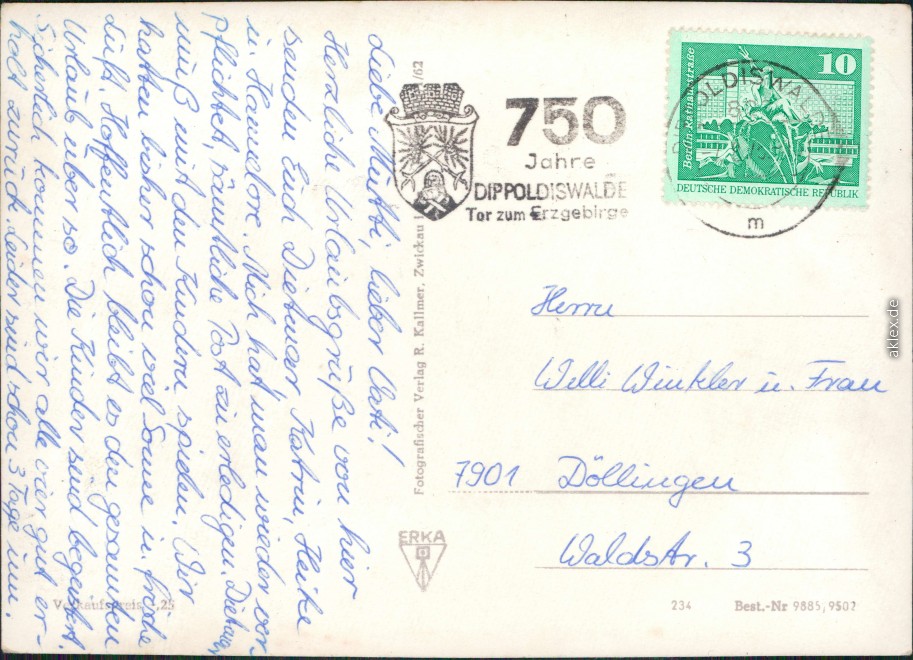 Liebe Mutti, lieber Vati!
Herzliche Urlaubsgrüße von hier
senden Euch Dietmar, Katrin, Heike
u. Hanelore. Mich hat man wieder ver-
pflichtet, sämtliche Post zu erledigen. Dietmar
muß mit den Kindern spielen. Wir
hatten bisher schon viel Sonne u. frische
Luft. Hoffentlich bleibt es den gesamten
Urlaub ebenso. Die Kinder sind begeistert.
Sicherlich kommen wir alle vier gut er-
holt zurück. Leider sind schon 3 Tage um.
/62
Fotografischer Verlag R. Kallmer, Zwickau
750
Jahre
DIPPOLDISWALDE
Tor zum Erzgebirge
10
Berlin-Rathausstraße
DEUTSCHE DEMOKRATISCHE REPUBLIK
DIPPOLDISWALDE
m
Herrn
Willi Winkler u. Frau
7901 Döllingen
Waldstr. 3
ERKA
Verkaufspreis ,25
234 Best.-Nr 9885/9502
aklex.de